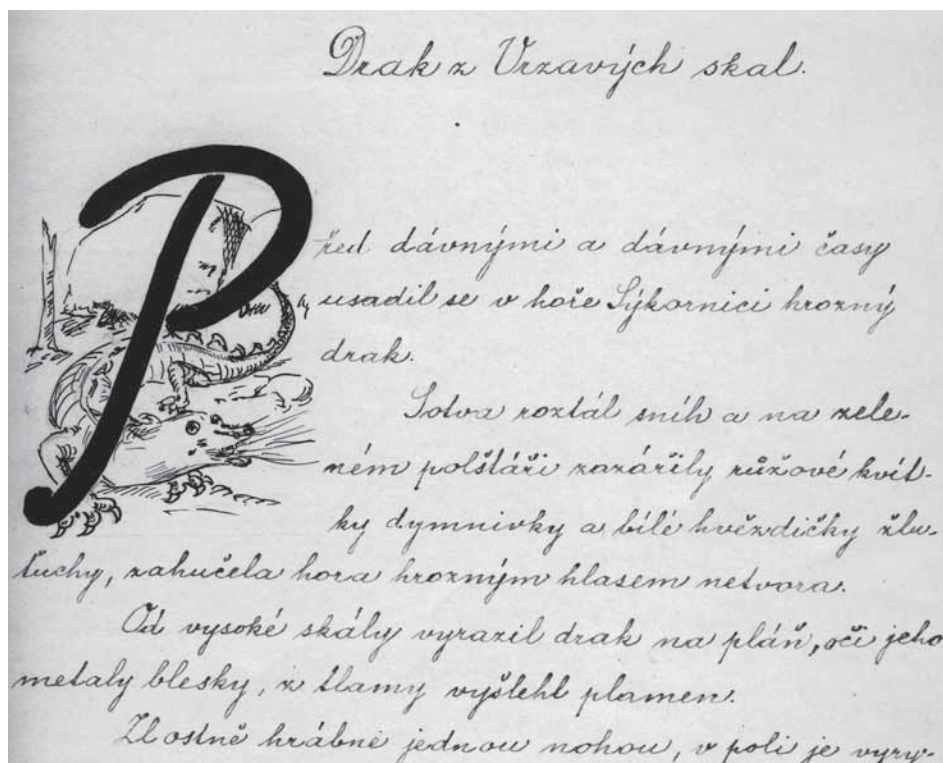 Drak z Vrzavých skal.
Před dávnými a dávnými časy
usadil se v hoře Sýkornici hrozný
drak.
Sotva roztál sníh a na zele-
ném polštáři zazářily růžové kvít-
ky dymnivky a bílé hvězdičky žlu-
ťuchy, zahučela hora hrozným hlasem netvora.
Od vysoké skály vyrazil drak na pláň, oči jeho
metaly blesky, z tlamy vyšlehl plamen.
Zlostně hrábne jednou nohou, v poli je vyry-